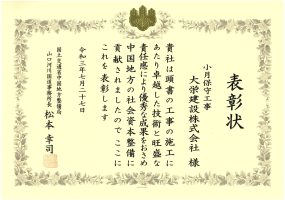 表彰状
小月保守工事
大栄建設株式会社 様
貴社は頭書の工事の施工に
あたり卓越した技術と旺盛な
責任感により優秀な成果をおさめ
中国地方の社会資本整備に
貢献されましたのでここに
これを表彰します
令和三年七月二十七日
国土交通省中国地方整備局
山口河川国道事務所長 松本幸司